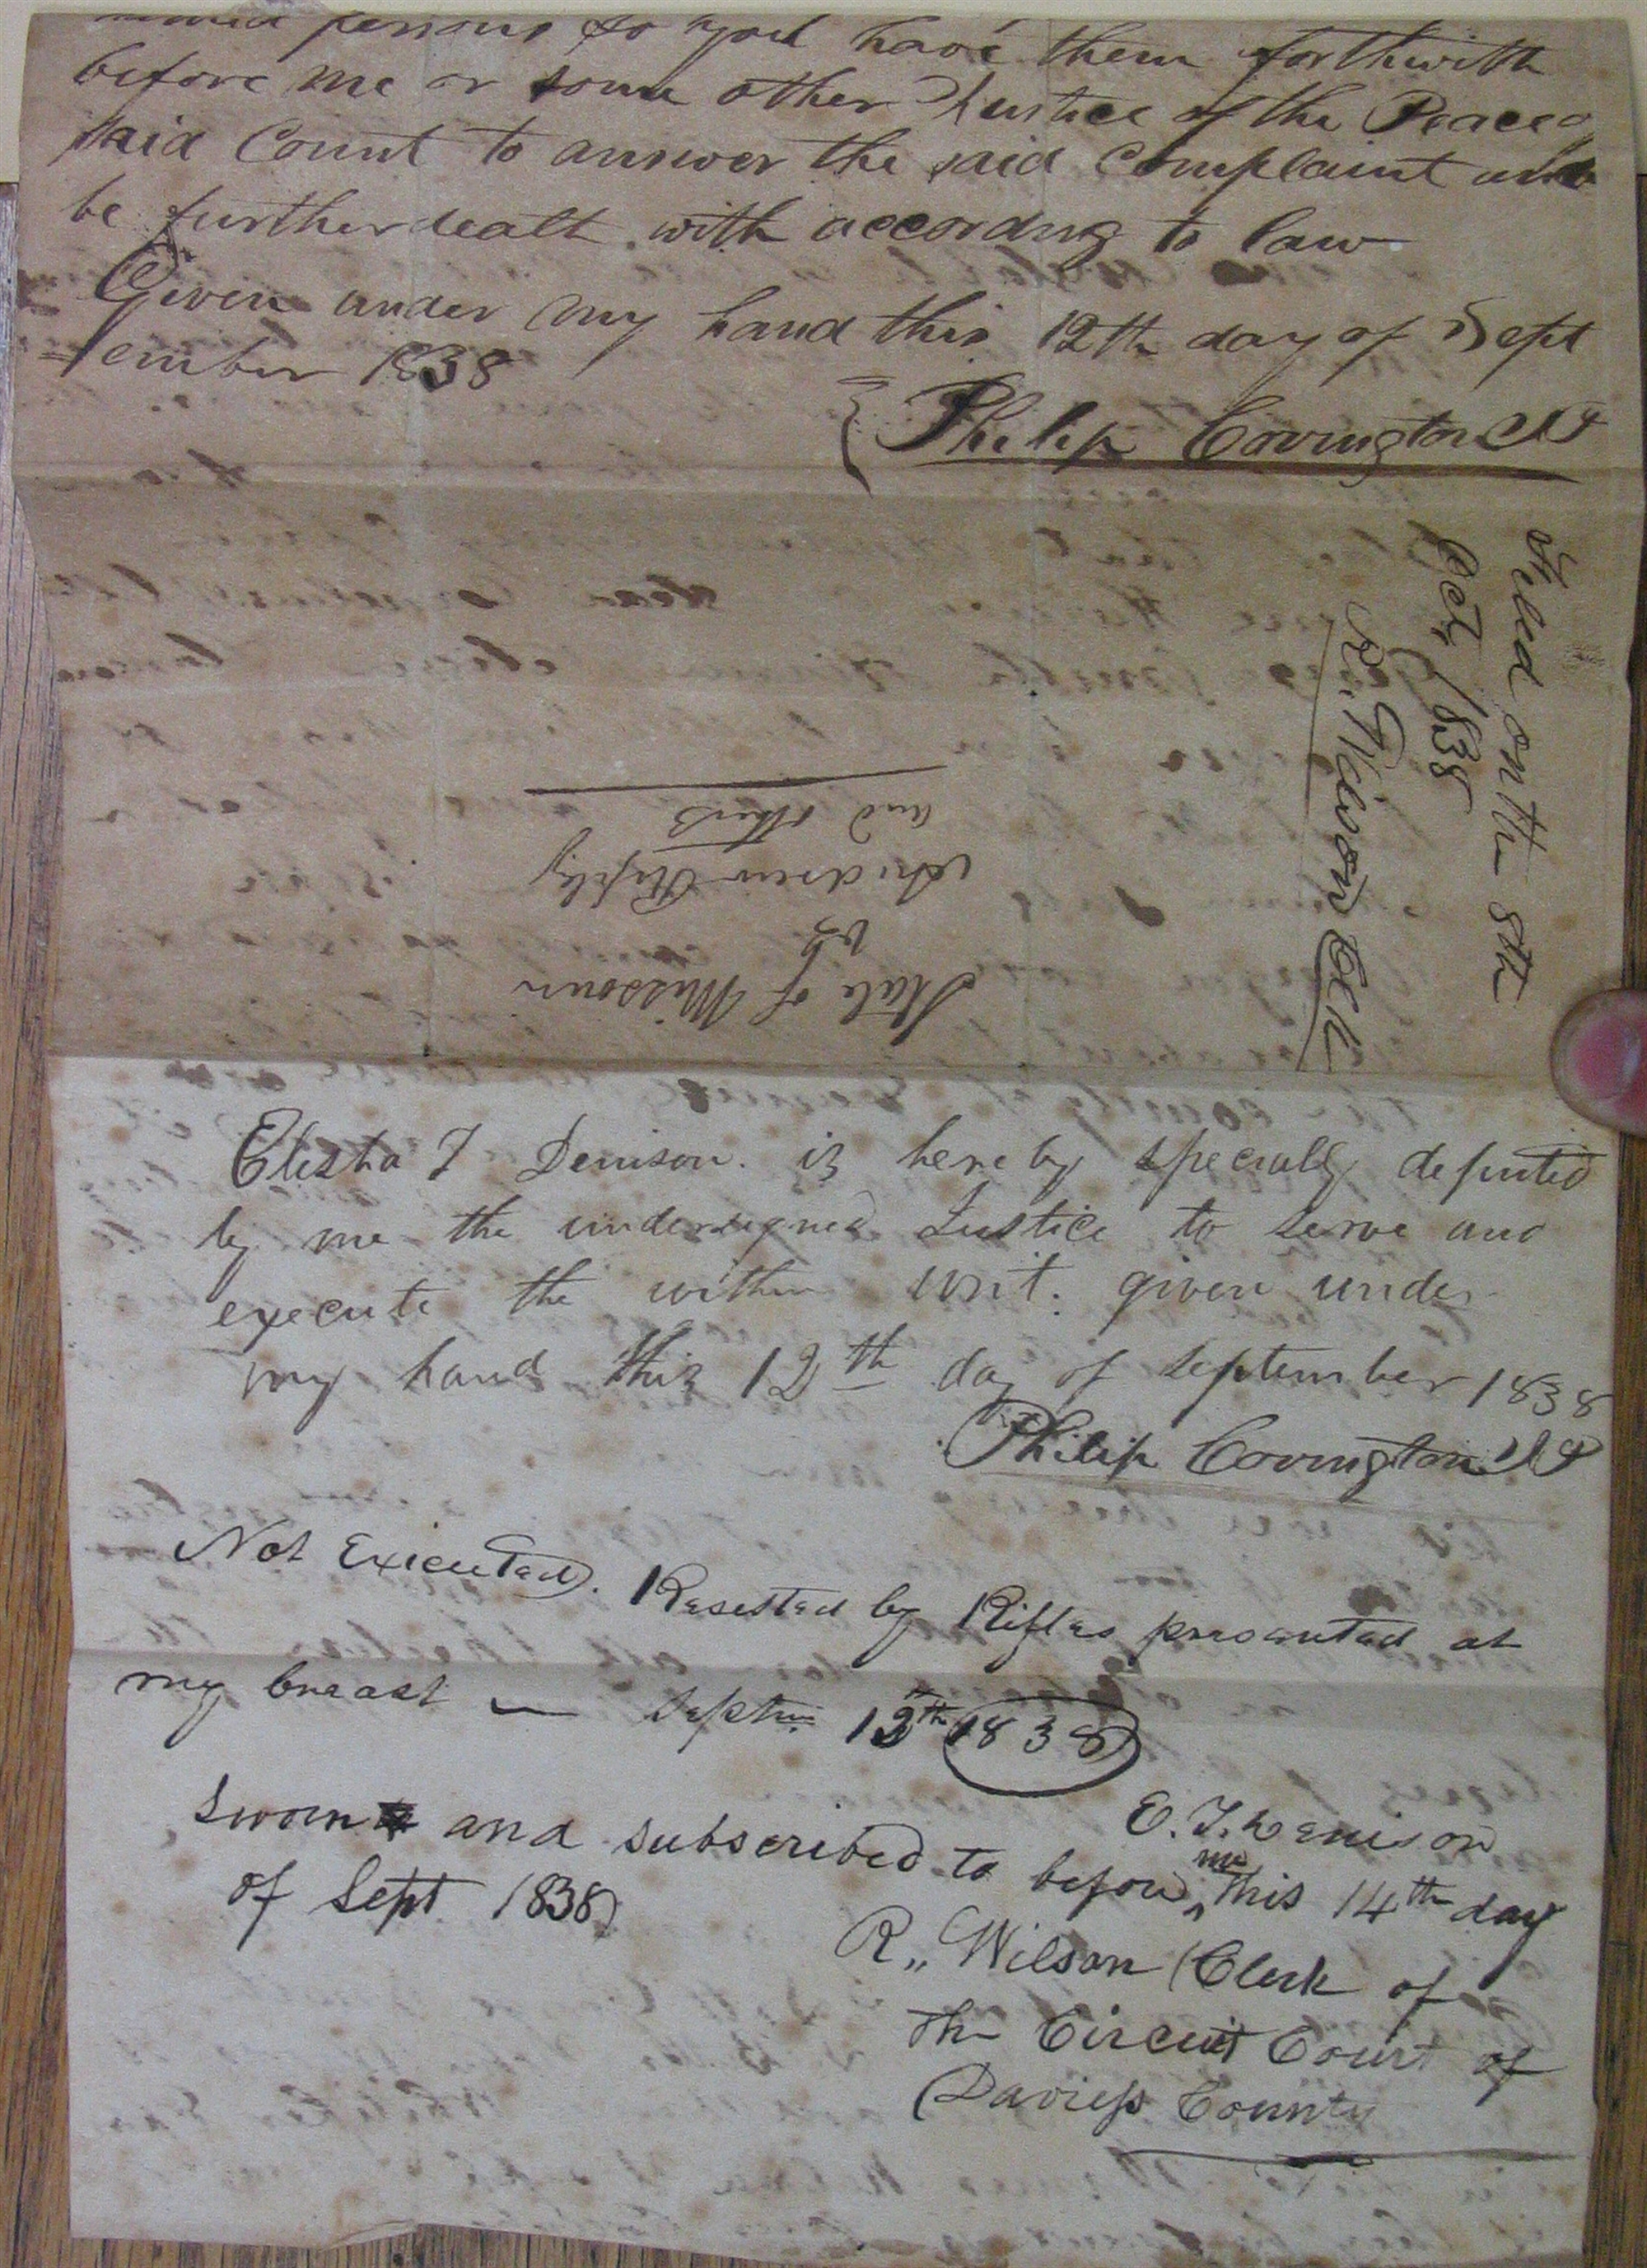 persons so you have them forthwith
before me or some other Justice of the Peace of
said Count to answer the said complaint and
be further dealt with accordng to law
Given under my hand this 12th day of Sept
ember 1838
Philip Covington JP
Filed on the 8th
Oct, 1838
R. Wilson Clk
State of Missouri
vs
Andrew Ripley
and others
Elisha T Denison. is hereby specially deputed
by me the undersigned Justice to serve and
execute the within writ. given under
my hand this 12th day of September 1838
Philip Covington JP
Not Executed. Resested by Rifles presented at
my breast — Septm 12th 1838
E. T. Denison
Sworn and subscribed to before me this 14th day
of Sept 1838
R,, Wilson Clerk of
the Circuit Court of
Daviess County